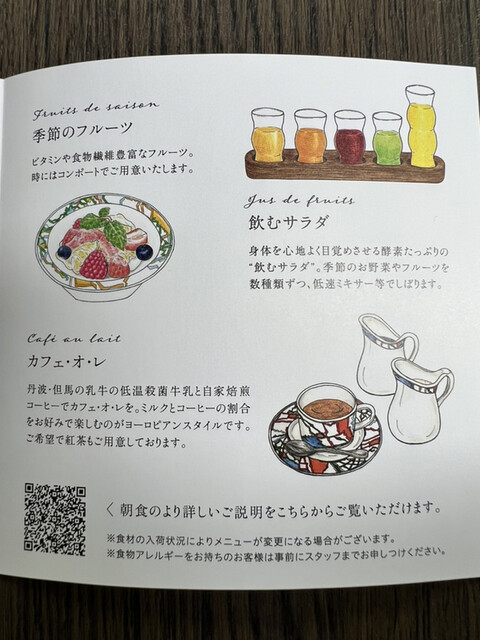 Fruits de saison
季節のフルーツ
ビタミンや食物繊維豊富なフルーツ。
時にはコンポートでご用意いたします。
Jus de fruits
飲むサラダ
身体を心地よく目覚めさせる酵素たっぷりの
“飲むサラダ”。季節のお野菜やフルーツを
数種類ずつ、低速ミキサー等でしぼります。
Café au lait
カフェ・オ・レ
丹波・但馬の乳牛の低温殺菌牛乳と自家焙煎
コーヒーでカフェ・オ・レを。ミルクとコーヒーの割合
をお好みで楽しむのがヨーロピアンスタイルです。
ご希望で紅茶もご用意しております。
〈 朝食のより詳しいご説明をこちらからご覧いただけます。
※食材の入荷状況によりメニューが変更になる場合がございます。
※食物アレルギーをお持ちのお客様は事前にスタッフまでお申しつけください。